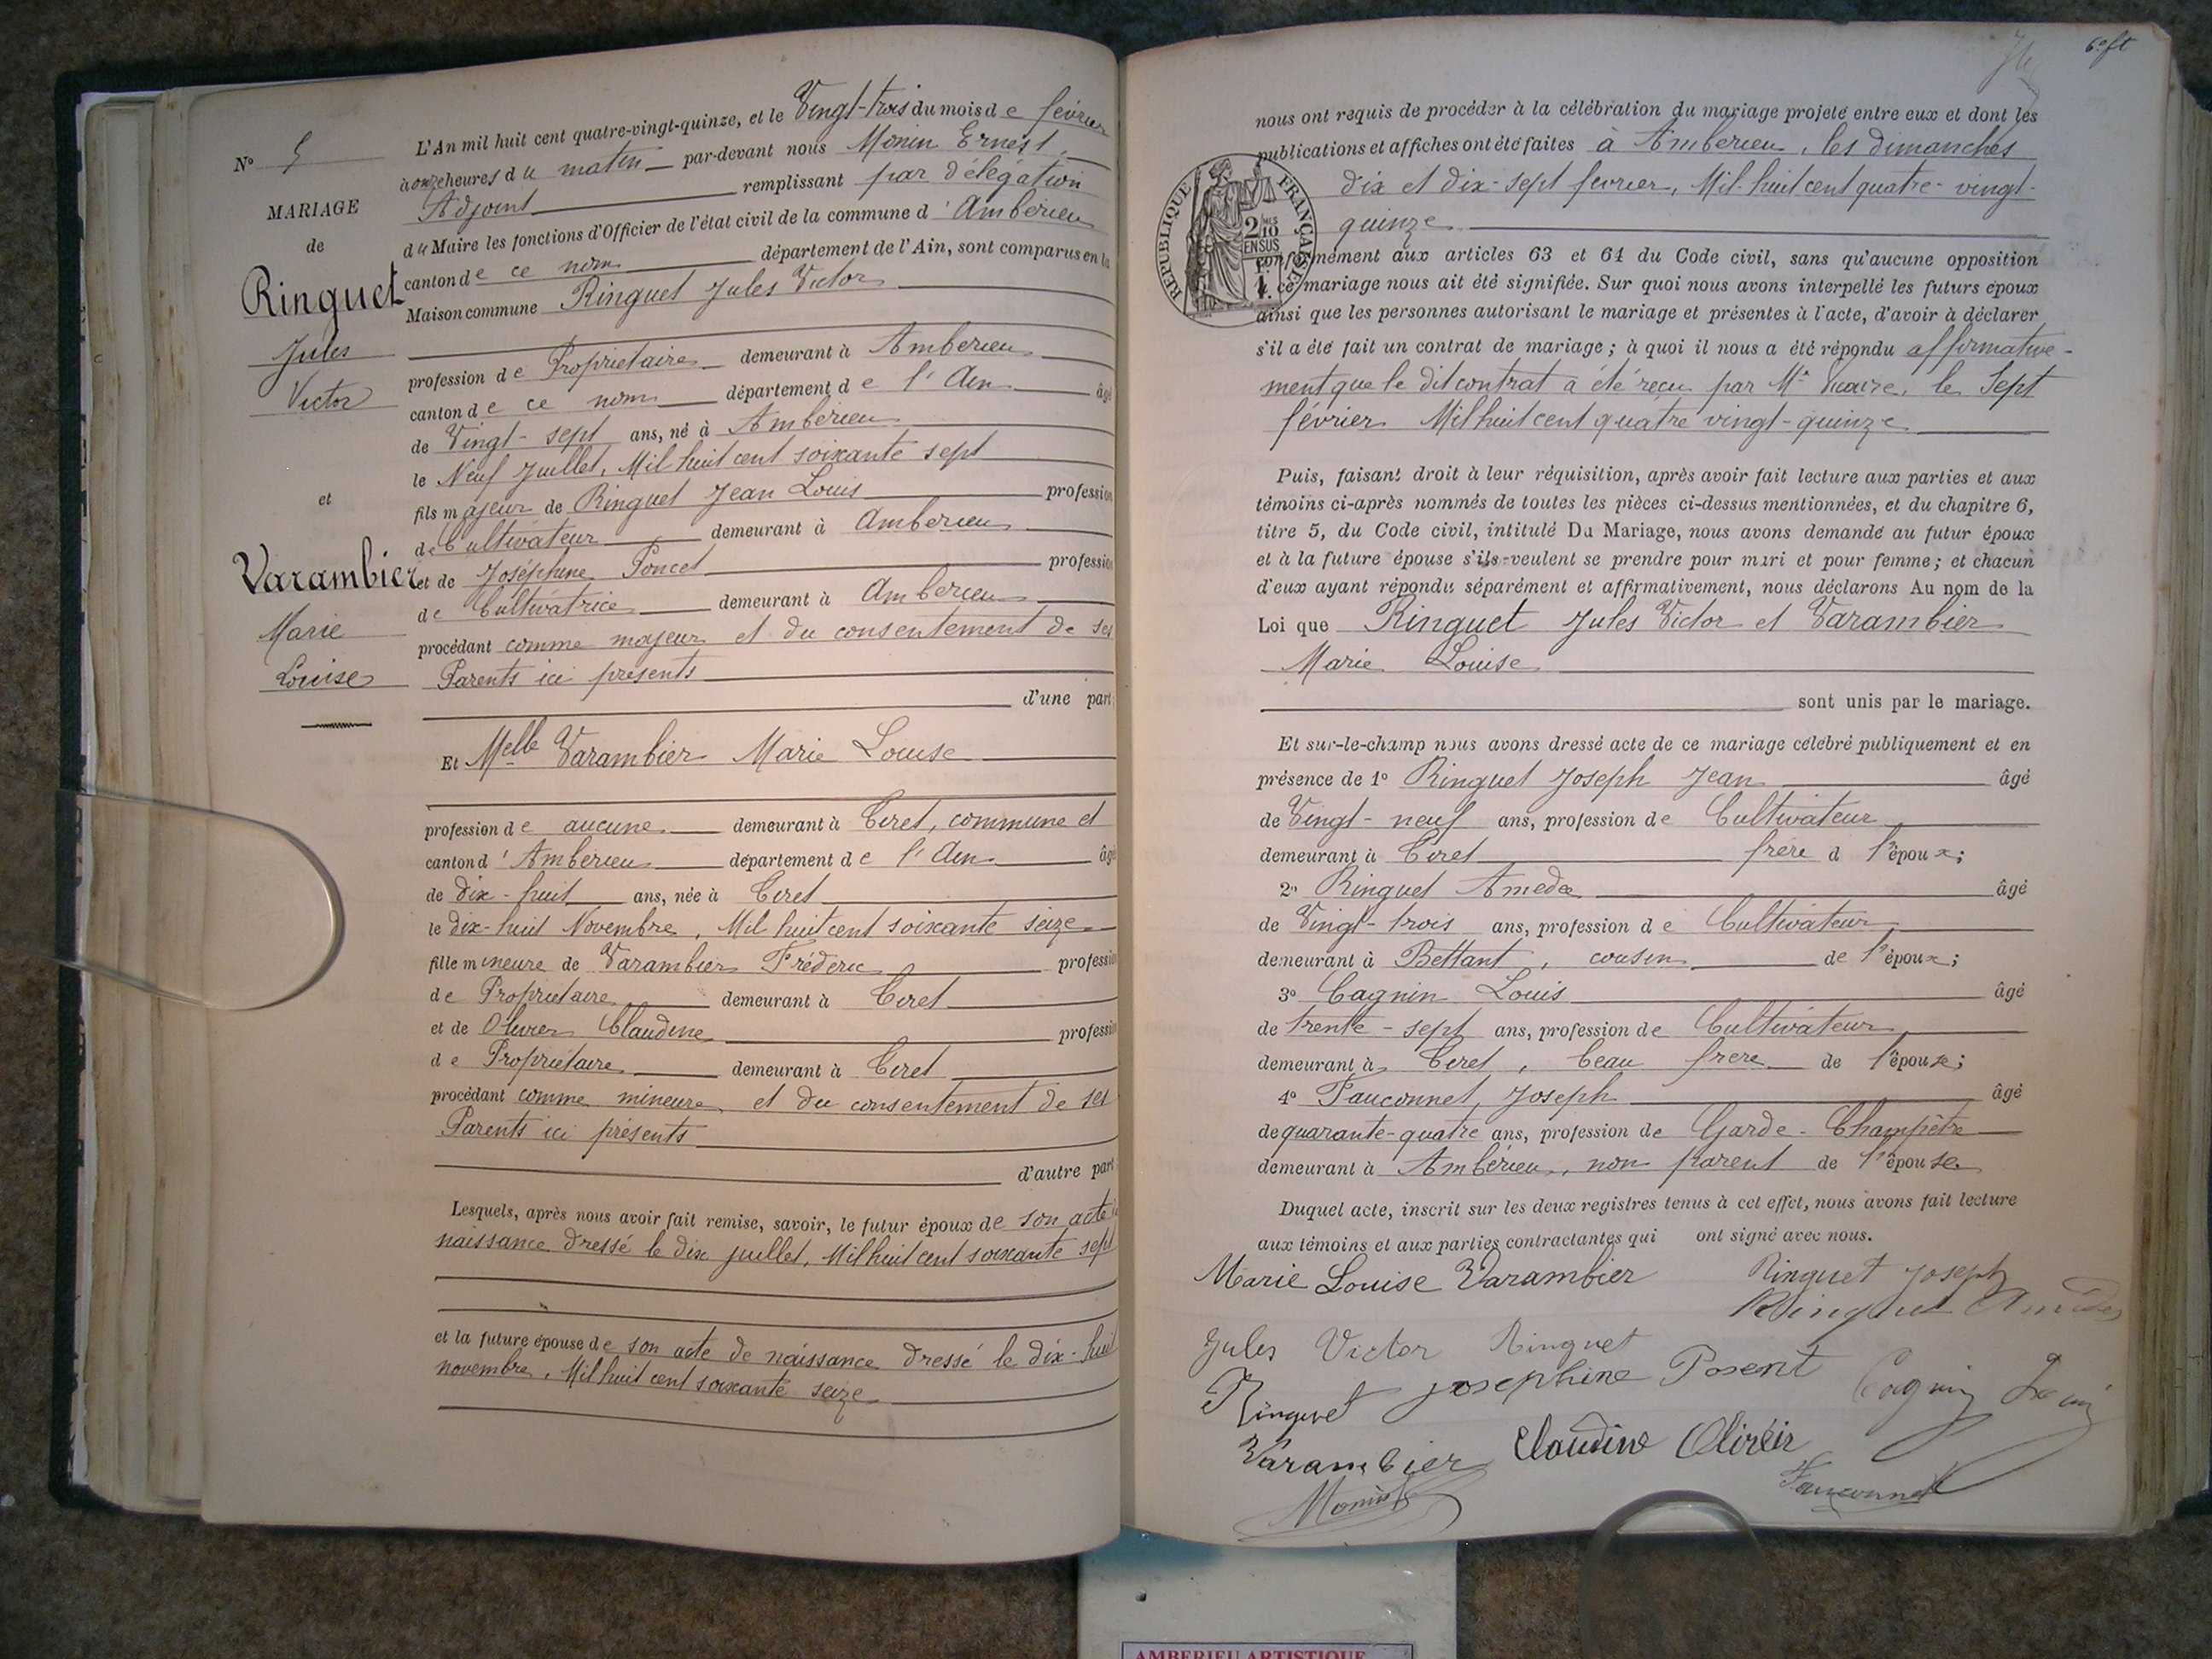 N° 5
MARIAGE
de
Ringuet
Jules
Victor
et
Varambier
Marie
Louise
L'An mil huit cent quatre-vingt-quinze, et le Vingt-trois du mois de février
à onze heures du matin par-devant nous Monin Ernest,
Adjoint remplissant par délégation
du Maire les fonctions d'Officier de l'état civil de la commune d'Ambérieu
canton de ce nom département de l'Ain, sont comparus en la
Maison commune Ringuet Jules Victor
profession de Propriétaire demeurant à Ambérieu
canton de ce nom département de l'Ain âgé
de Vingt-sept ans, né à Ambérieu
le Neuf Juillet, Mil huit cent soixante sept
fils majeur de Ringuet Jean Louis profession
de Cultivateur demeurant à Ambérieu
et de Joséphine Poncet profession
de Cultivatrice demeurant à Ambérieu
procédant comme majeur et du consentement de ses
Parents ici présents
d'une part;
Et Melle Varambier Marie Louise
profession de aucune demeurant à Tiret, commune et
canton d'Ambérieu département de l'Ain âgé
de dix-huit ans, née à Tiret
le dix-huit Novembre, Mil huit cent soixante seize
fille mineure de Varambier Fréderic profession
de Propriétaire demeurant à Tiret
et de Olivier Claudine profession
de Propriétaire demeurant à Tiret
procédant comme mineure et du consentement de ses
Parents ici présents
d'autre part
Lesquels, après nous avoir fait remise, savoir, le futur époux de son acte de
naissance dressé le dix juillet, Mil huit cent soixante sept
et la future épouse de son acte de naissance dressé le dix-huit
novembre, Mil huit cent soixante seize
6e ft
nous ont requis de procéder à la célébration du mariage projeté entre eux et dont les
publications et affiches ont été faites à Ambérieu, les dimanches
dix et dix-sept février, Mil-huit cent quatre-vingt-
quinze
RÉPUBLIQUE FRANÇAISE
2/10 EN SUS
conformément aux articles 63 et 64 du Code civil, sans qu'aucune opposition
à ce mariage nous ait été signifiée. Sur quoi nous avons interpellé les futurs époux
ainsi que les personnes autorisant le mariage et présentes à l'acte, d'avoir à déclarer
s'il a été fait un contrat de mariage; à quoi il nous a été répondu affirmative-
ment que le dit contrat a été reçu par Me Vicaire, le Sept
février Mil huit cent quatre vingt-quinze
Puis, faisant droit à leur réquisition, après avoir fait lecture aux parties et aux
témoins ci-après nommés de toutes les pièces ci-dessus mentionnées, et du chapitre 6,
titre 5, du Code civil, intitulé Du Mariage, nous avons demandé au futur époux
et à la future épouse s'ils veulent se prendre pour mari et pour femme; et chacun
d'eux ayant répondu séparément et affirmativement, nous déclarons Au nom de la
Loi que Ringuet Jules Victor et Varambier
Marie Louise
sont unis par le mariage.
Et sur-le-champ nous avons dressé acte de ce mariage célébré publiquement et en
présence de 1° Ringuet Joseph Jean âgé
de Vingt-neuf ans, profession de Cultivateur
demeurant à Tiret frère d l'époux;
2° Ringuet Amedée âgé
de Vingt-trois ans, profession de Cultivateur
demeurant à Bettant, cousin de l'époux;
3° Cagnin Louis âgé
de trente-sept ans, profession de Cultivateur
demeurant à Tiret, beau frère de l'épouse;
4° Fauconnet, Joseph âgé
de quarante-quatre ans, profession de Garde-Champêtre
demeurant à Ambérieu, non parent de l'épouse
Duquel acte, inscrit sur les deux registres tenus à cet effet, nous avons fait lecture
aux témoins et aux parties contractantes qui ont signé avec nous.
Marie Louise Varambier Ringuet Joseph
Ringuet Amédée
Jules Victor Ringuet
Ringuet Josephine Posent Cagnin Louis
Varambier Claudine Olivéir
Monin Fauconnet
AMBERIEU ARTISTIQUE